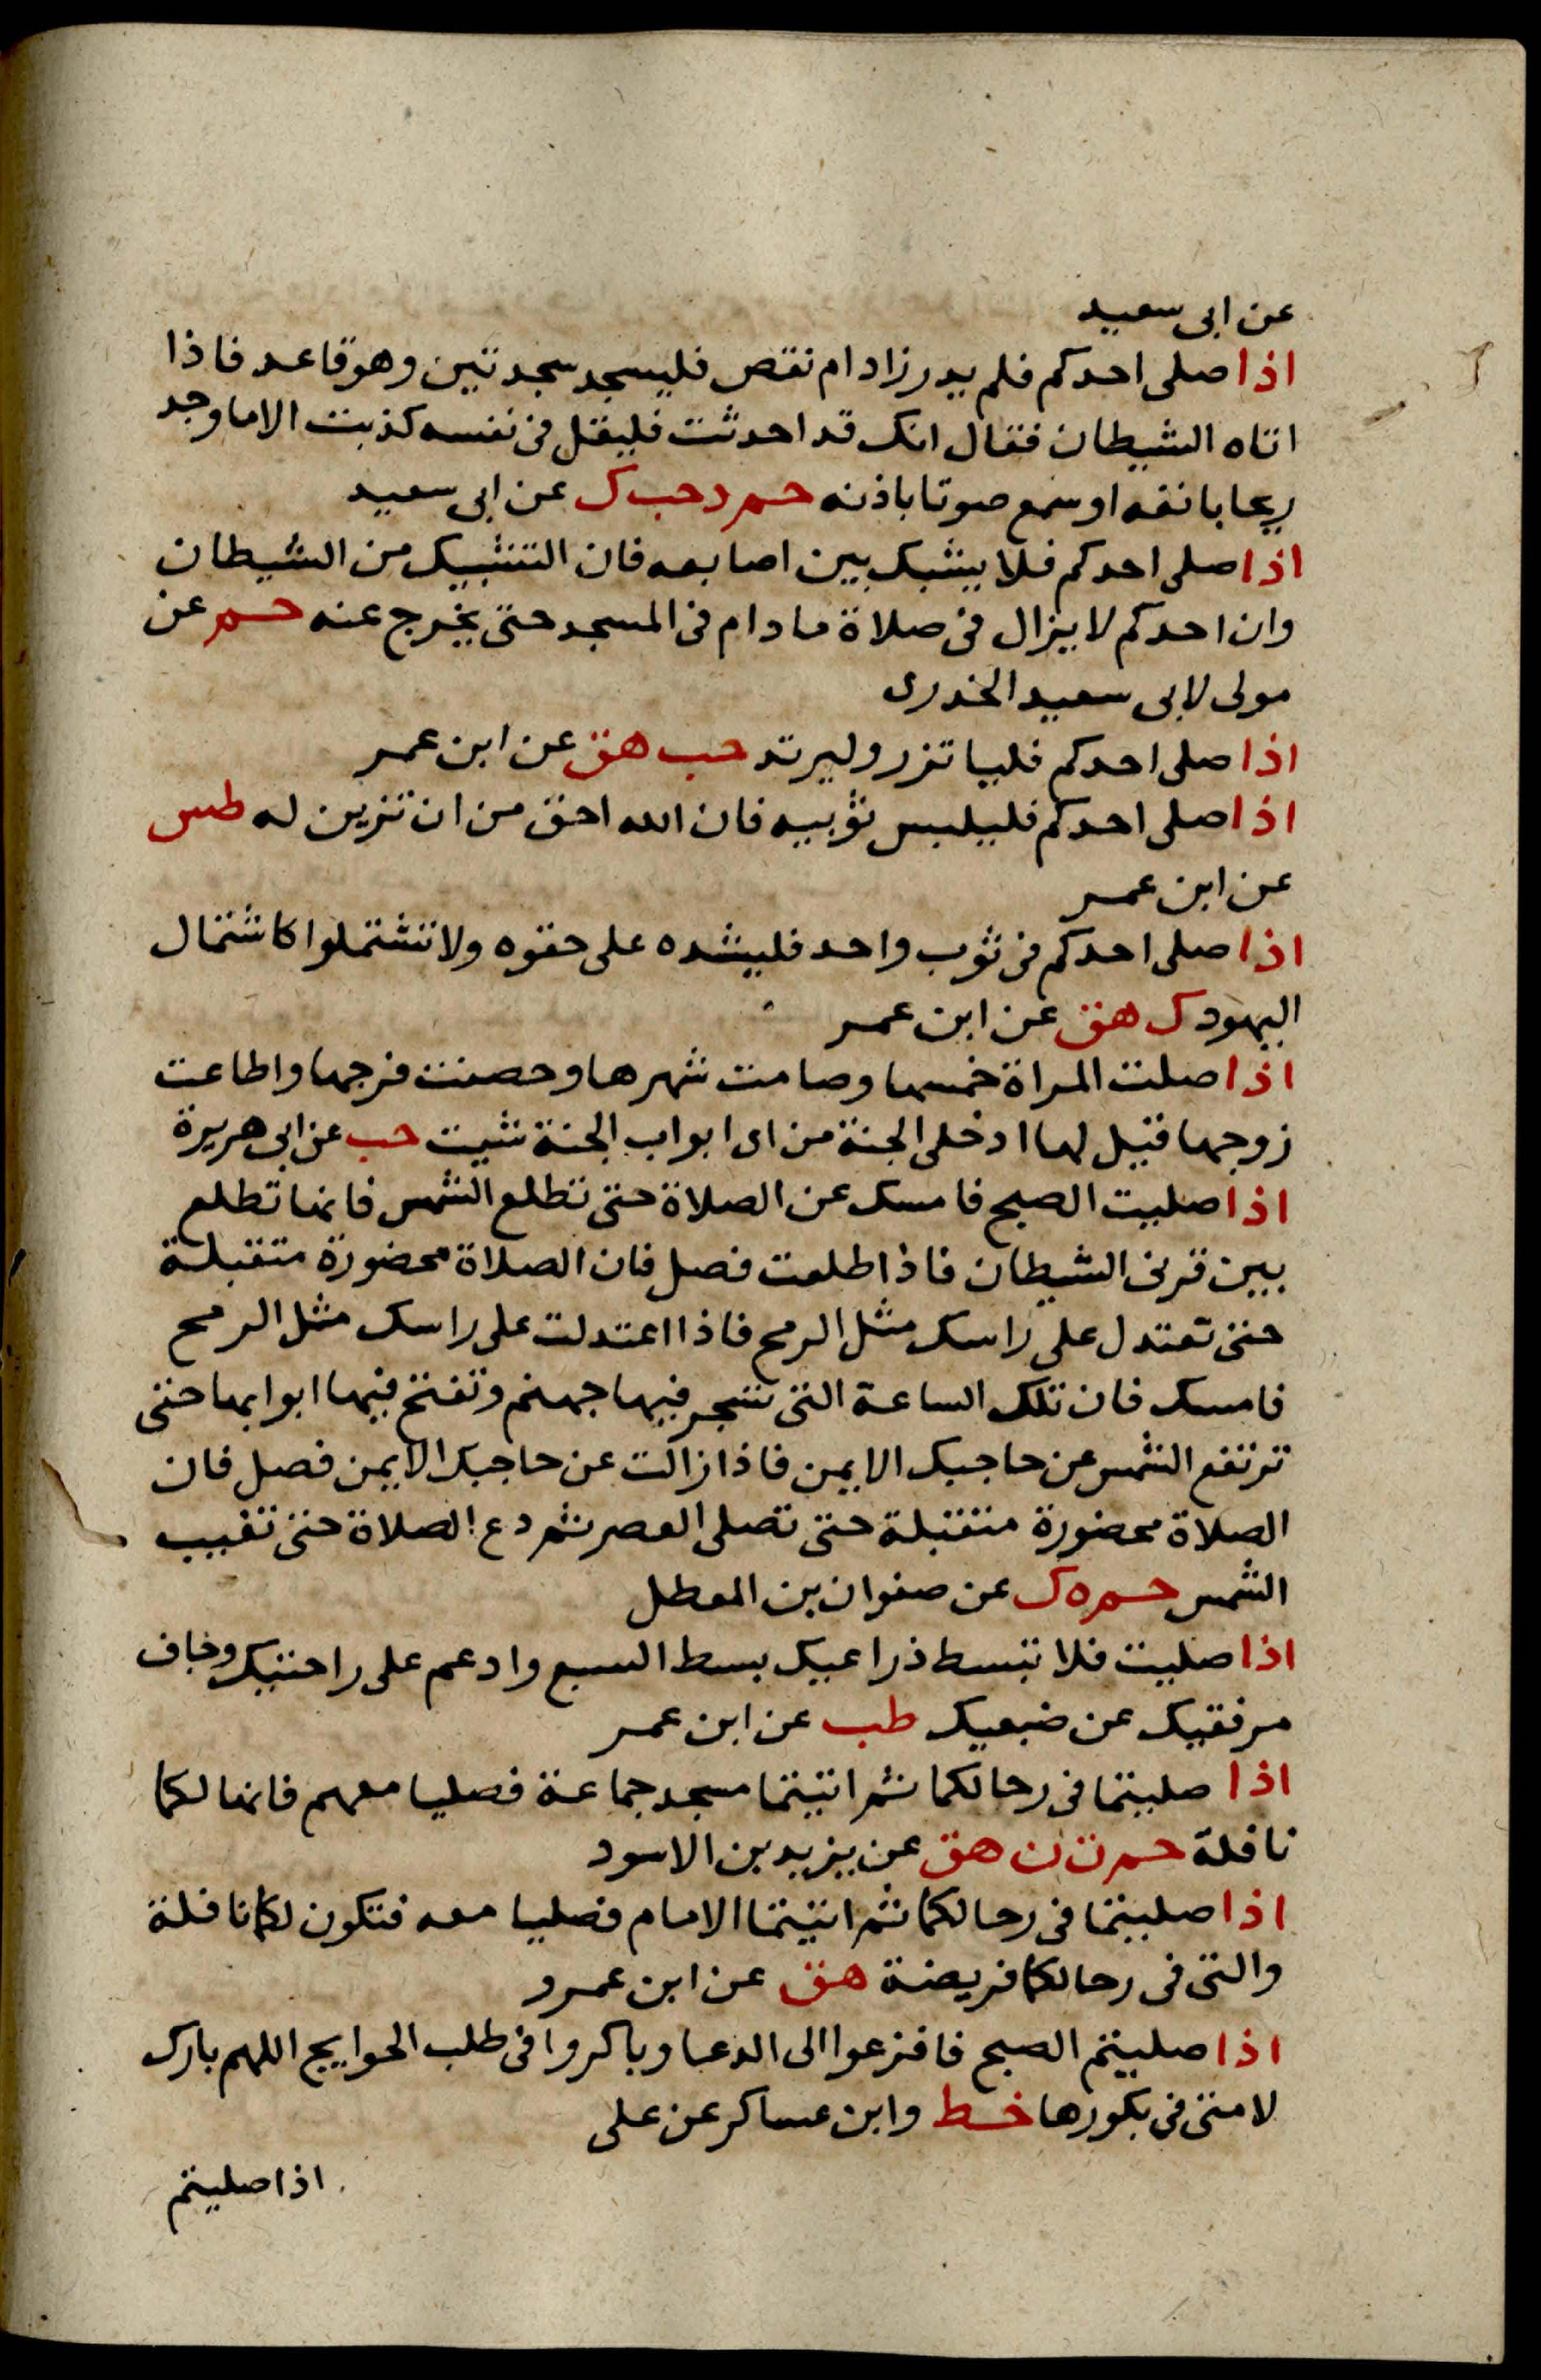 عن ابى سعيد
اذا صلى احدكم فلم يدر زاد ام نقص فليسجد سجدتين وهو قاعد فاذا
اتاه الشيطان فقال انك قد احدثت فليقل فى نفسه كذبت الا ما وجد
ريحا بانفه او سمع صوتا باذنه حم د حب ك عن ابى سعيد
اذا صلى احدكم فلا يشبك بين اصابعه فان التشبيك من الشيطان
وان احدكم لا يزال فى صلاة ما دام فى المسجد حتى يخرج عنه حم عن
مولى لابى سعيد الخدرى
اذا صلى احدكم فلياتزر وليرتد حب هق عن ابن عمر
اذا صلى احدكم فليلبس ثوبيه فان الله احق من ان تزين له طس
عن ابن عمر
اذا صلى احدكم فى ثوب واحد فليشده على حقوه ولا تشتملوا كاشتمال
اليهود ك هق عن ابن عمر
اذا صلت المراة خمسها وصامت شهرها وحصنت فرجها واطاعت
زوجها قيل لها ادخلى الجنة من اى ابواب الجنة شيت حب عن ابى هريرة
اذا صليت الصبح فامسك عن الصلاة حتى تطلع الشمس فانها تطلع
بين قرنى الشيطان فاذا طلعت فصل فان الصلاة محضورة متقبلة
حتى تعتدل على راسك مثل الرمح فاذا اعتدلت على راسك مثل الرمح
فامسك فان تلك الساعة التى تسجر فيها جهنم وتفتح فيها ابوابها حتى
ترتفع الشمس عن حاجبك الايمن فاذا زالت عن حاجبك الايمن فصل فان
الصلاة محضورة متقبلة حتى تصلى العصر ثم دع الصلاة حتى تغيب
الشمس حم ه ك عن صفوان بن المعطل
اذا صليت فلا تبسط ذراعيك بسط السبع وادعم على راحتيك وجاف
مرفقيك عن ضبعيك طب عن ابن عمر
اذا صليتما فى رحالكما ثم اتيتما مسجد جماعة فصليا معهم فانها لكما
نافلة حم ت ن هق عن يزيد بن الاسود
اذا صليتما فى رحالكما ثم اتيتما الامام فصليا معه فتكون لكما نافلة
والتى فى رحالكما فريضة هق عن ابن عمرو
اذا صليتم الصبح فافزعوا الى الدعا وباكروا فى طلب الحوايج اللهم بارك
لامتى فى بكورها خط وابن عساكر عن على
اذا صليتم